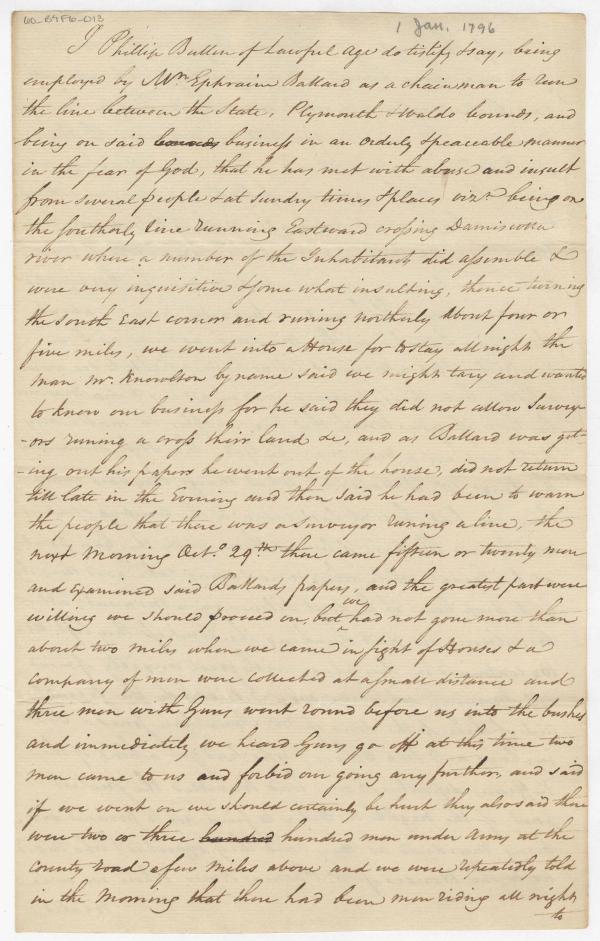 60-B4F6-013
1 Jan. 1796
I Phillip Bullen of Lawful Age do testify & say, being
employed by Mr. Ephraim Ballard as a chainman to run
the line between the State, Plymouth & Waldo bounds, and
being on said bounds business in an orderly & peaceable manner
in the fear of God, that he has met with abuse and insult
from several people & at sundry times & places vizt. being on
the southerly line running Eastward crossing Damiscotta
river where a number of the Inhabitants did assemble &
were very inquisitive & some what insulting, thence turning
the South East corner and runing northerly about four or
five miles, we went into a House for to stay all night the
man Mr. Knowlton by name said we might tary and wanted
to know our business for he said they did not allow Survey-
-ors runing a cross their land &c, and as Ballard was get-
-ing out his papers he went out of the house, did not return
till late in the Evening and then said he had been to warn
the people that there was a surveyor runing a line, the
next Morning Octo. 29th. there came fifteen or twenty men
and examined said Ballards papers, and the greatest part were
willing we should proceed on, but we had not gone more than
about two miles when we came in sight of Houses & a
company of men were collected at a small distance and
three men with Guns went round before us into the bushes
and immediately we heard Guns go off at this time two
men came to us and forbid our going any further, and said
if we went on we should certainly be hurt they also said there
were two or three hundred hundred men under Arms at the
county road a few miles above and we were repeatedly told
in the Morning that there had been men riding all night
to